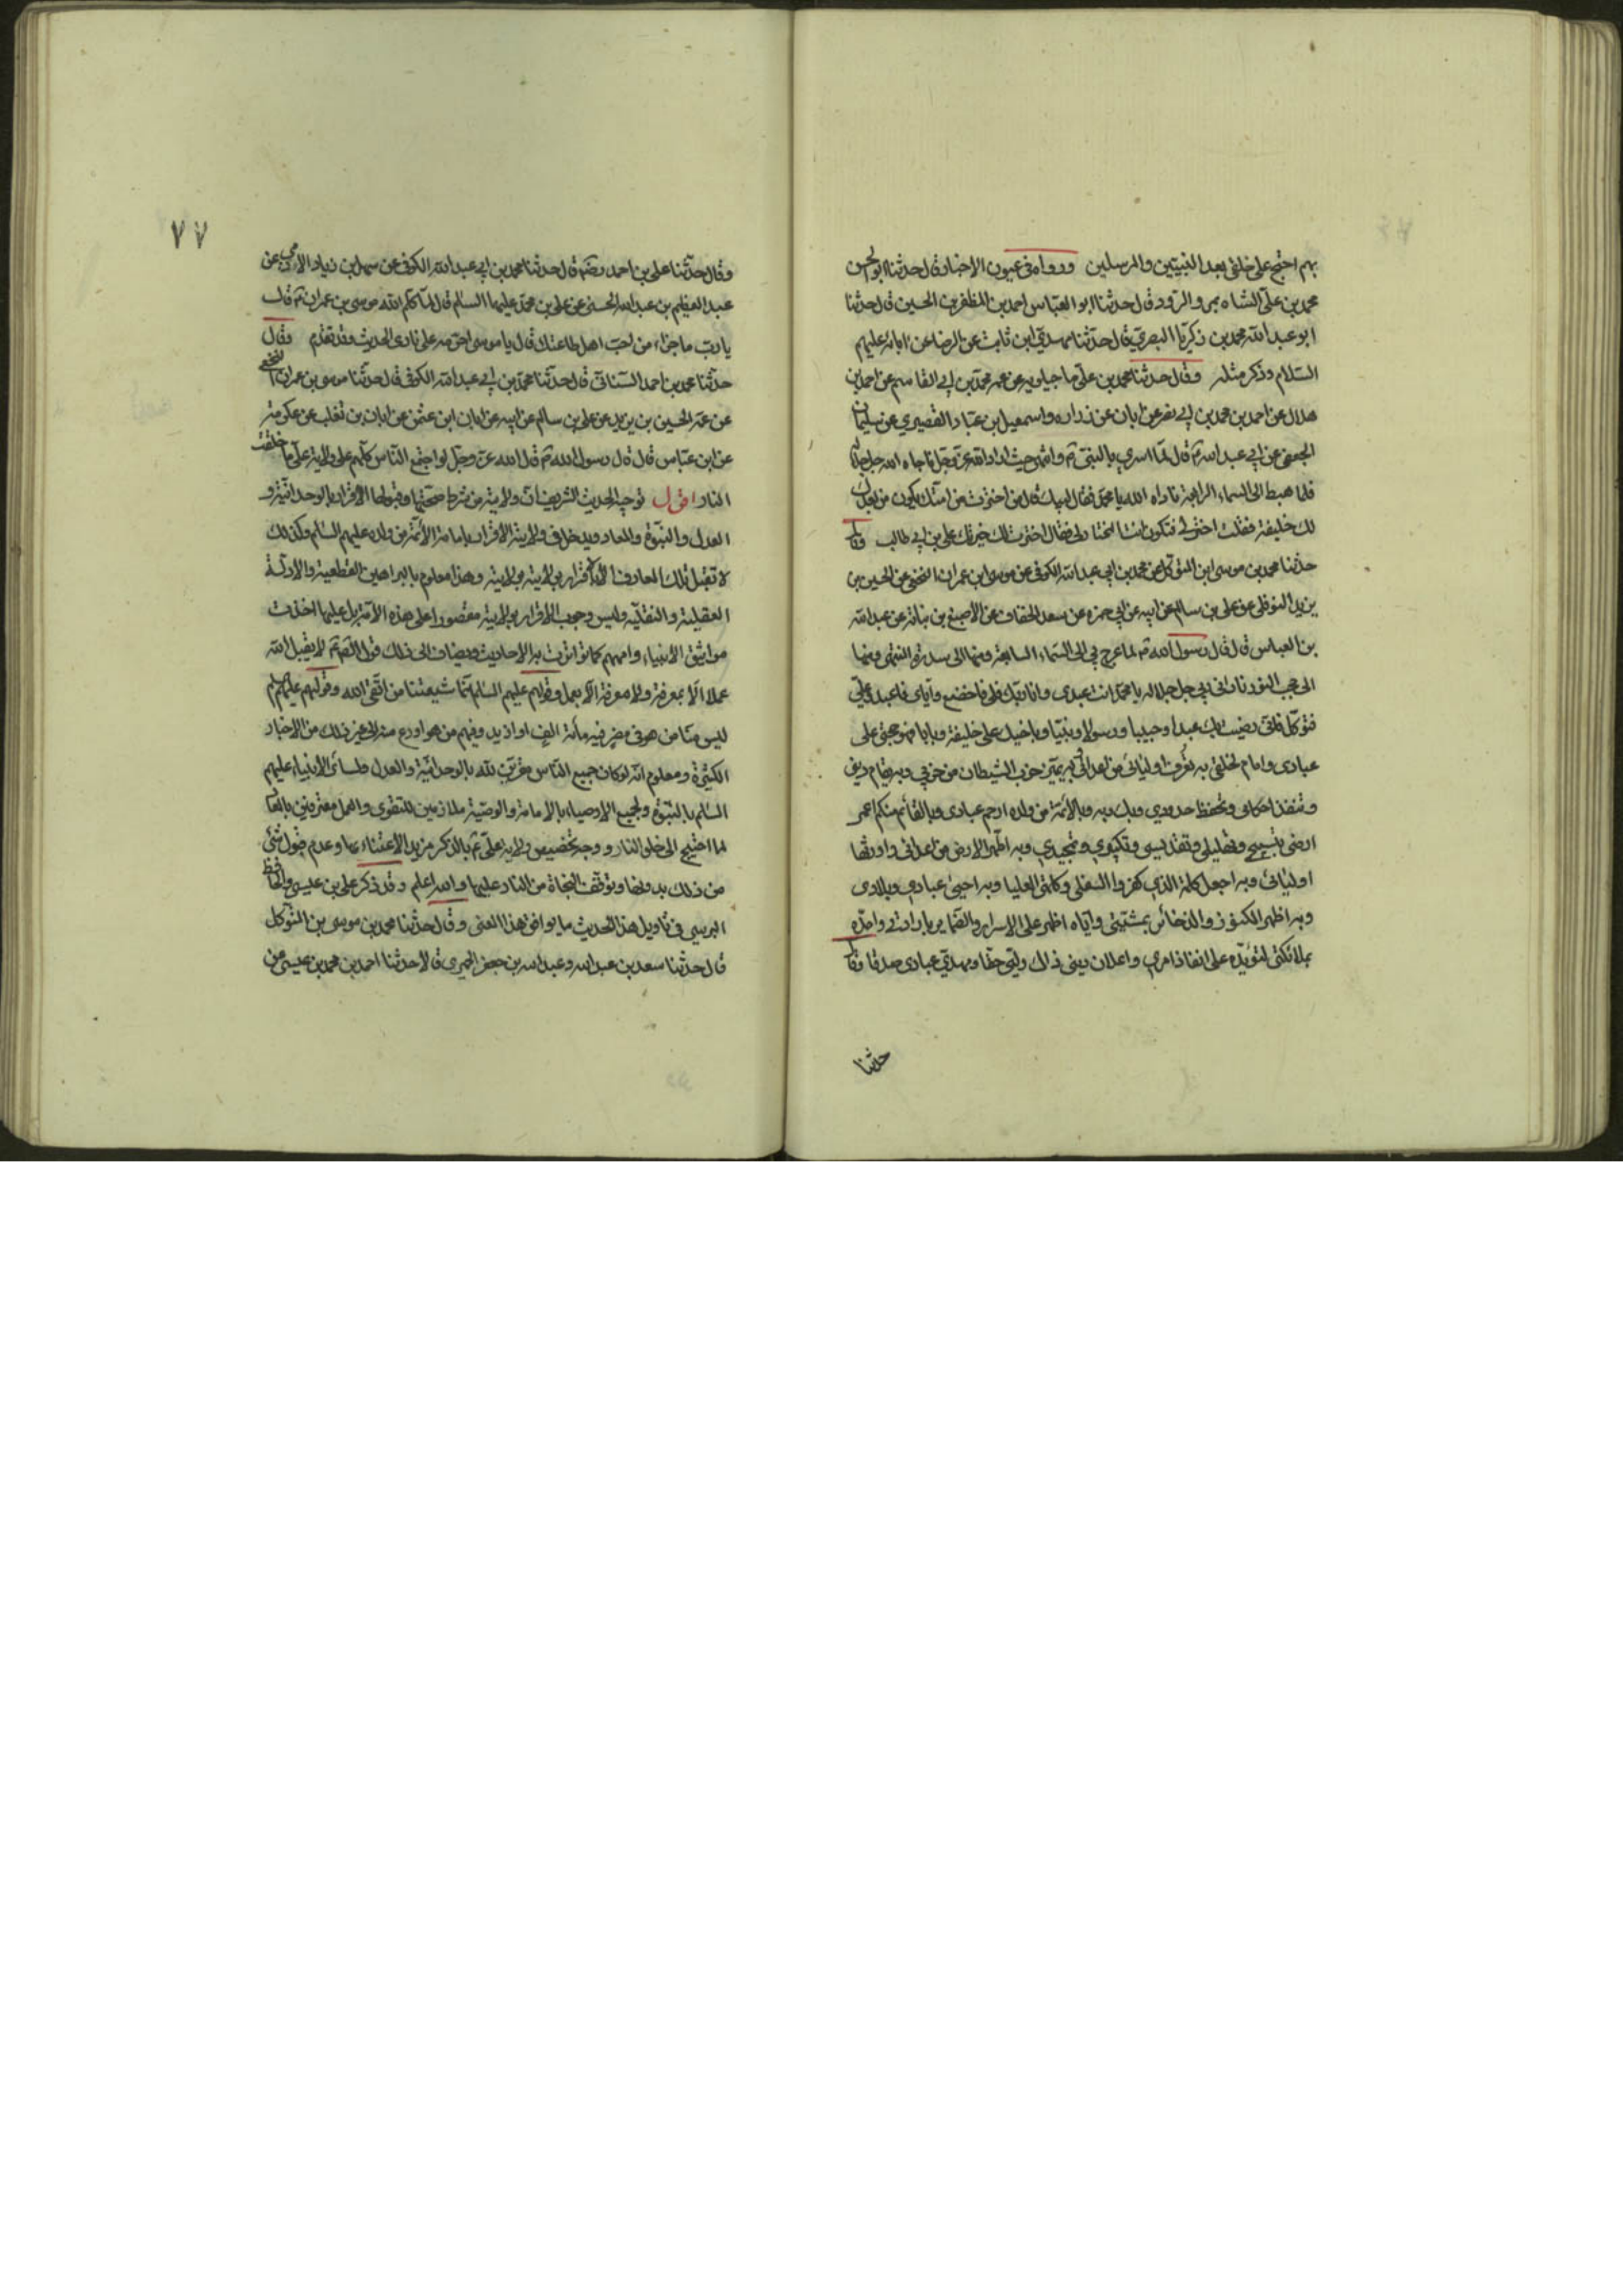 بهم احتج على خلقى بعد النبيين والمرسلين ورواه فى عيون الاخبار قال حدثنا ابو الحسن
محمد بن على الشاه بمرو الرود قال حدثنا ابو العباس احمد بن المظفر بن الحسين قال حدثنا
ابو عبد الله محمد بن زكريا البصرى قال حدثنا مهدى ابن ثابت عن الرضا عن ابائه عليهم
السلام وذكر مثله وقال حدثنا محمد بن على ماجيلويه عن عمه محمد بن ابى القاسم عن احمد بن
هلال عن احمد بن محمد بن ابى نصر عن ابان عن زراره واسمعيل بن عباد القصيري عن سليمان
الجعفى عن ابى عبد الله ع قال لما اسري بالنبى ص وانتهى حيث اراد الله عز وجل ناجاه الله جل جلاله
فلما هبط الى السماء الرابعة ناداه الله يا محمد فقال لبيك قال من اخترت من امتك يكون من بعدك
لك خليفة فقلت اختر لى فتكون انت المختار لى فقال اخترت لك خيرتك على بن ابى طالب وقال
حدثنا محمد بن موسى ابن المتوكل عن محمد بن ابى عبد الله الكوفى عن موسى ابن عمران النخعى عن الحسين بن
يزيد النوفلى عن على بن سالم عن ابيه عن ابى حمزه عن سعد الخفاف عن الاصبغ بن نباتة عن عبد الله
بن العباس قال قال رسول الله ص لما عرج بى الى السماء السابعة ومنها الى سدرة المنتهى ومنها
الى حجب النور نادانى ربى جل جلاله يا محمد انت عبدى وانا ربك فلى فاخضع واياى فاعبد وعلى
فتوكل فانى رضيت بك عبدا وحبيبا ورسولا ونبيا وباخيك على خليفة وبابا فهو حجتى على
عبادى وامام لخلقى به يعرف اوليائى من اعدائى وبه يميز حزب الشيطان من حزبي وبه يقام دينى
وتنفذ احكامى وتحفظ حدودي وبك وبه وبالائمة من ولده ارحم عبادى وبالقائم منكم اعمر
ارضى بتسبيحى وتهليلى وتقديسى وتكبيري وتمجيدي وبه اطهر الارض من اعدائى واورثها
اوليائى وبه اجعل كلمة الذي كفروا السفلى وكلمتى العليا وبه احيى عبادي وبلادى
وبه اظهر الكنوز والذخائر بمشيتى واياه اظهر على الاسرار والضماير بارادتى وامده
بملائكتى لتؤيده على انفاذ امري واعلان دينى ذلك وليى حقا ومهدي عبادى صدقا وقال
حدثنا
٧٧
وقال حدثنا على بن احمد رضه قال حدثنا محمد بن ابى عبد الله الكوفى عن سهل بن زياد الادمى عن
عبد العظيم بن عبد الله الحسنى عن على بن محمد عليهما السلام قال لما كلم الله موسى بن عمران ع قال
يا رب ما جزاء من احب اهل طاعتك قال يا موسى احرمه على نارى الحديث وقد تقدم وقال
حدثنا محمد بن احمد السنانى قال حدثنا محمد بن ابى عبد الله الكوفى قال حدثنا موسى بن عمران النخعى
عن عمه الحسين بن يزيد عن على بن سالم عن ابيه عن ابان ابن عثمن عن ابان بن تغلب عن عكرمة
عن ابن عباس قال قال رسول الله ص قال الله عز وجل لو اجتمع الناس كلهم على ولاية على ما خلقت
النار اقول توجيه الحديث الشريف ان ولايته من شرط صحتها وقبولها الاقرار بالوحدانية و
العدل والنبوة والمعاد ويدخل فى ولايته الاقرار بامامة الائمة من ولده عليهم السلام وكذلك
لا تقبل تلك المعارف الا بالاقرار بولايته وهذا معلوم بالبراهين القطعية والادلة
العقلية والنقلية وليس وجوب الاقرار بولايته مقصورا على هذه الامة بل عليها اخذت
مواثيق الانبياء واممهم كما تواترت به الاحاديث ويضاف الى ذلك قول الص ع لا يقبل الله
عملا الا بمعرفة ولا معرفة الا بعمل وقولهم عليهم السلام انما شيعتنا من اتقى الله وقولهم عليهم السلام
ليس منا من هو فى مصر فيه مائة الف او ازيد وفيهم من هو اورع منه الى غير ذلك من الاخبار
الكثيرة ومعلوم انه لو كان جميع الناس مقرين لله بالوحدانية والعدل ولسائر الانبياء عليهم
السلام بالنبوة ولجميع الاوصياء بالامامة والوصية ملازمين للتقوى والعمل معترفين بالمعاد
لما احتيج الى خلق النار ووجه تخصيص ولاية على ع بالذكر مزيد الاعتناء بها وعدم قبول شئ
من ذلك بدونها وتوقف النجاة من النار عليها والله اعلم وقد ذكر على بن عيسى والحافظ
البرسى فى تاويل هذا الحديث ما يوافق هذا المعنى وقال حدثنا محمد بن موسى بن المتوكل
قال حدثنا سعد بن عبد الله وعبد الله بن جعفر الحميرى قالا حدثنا احمد بن محمد بن عيسى عن